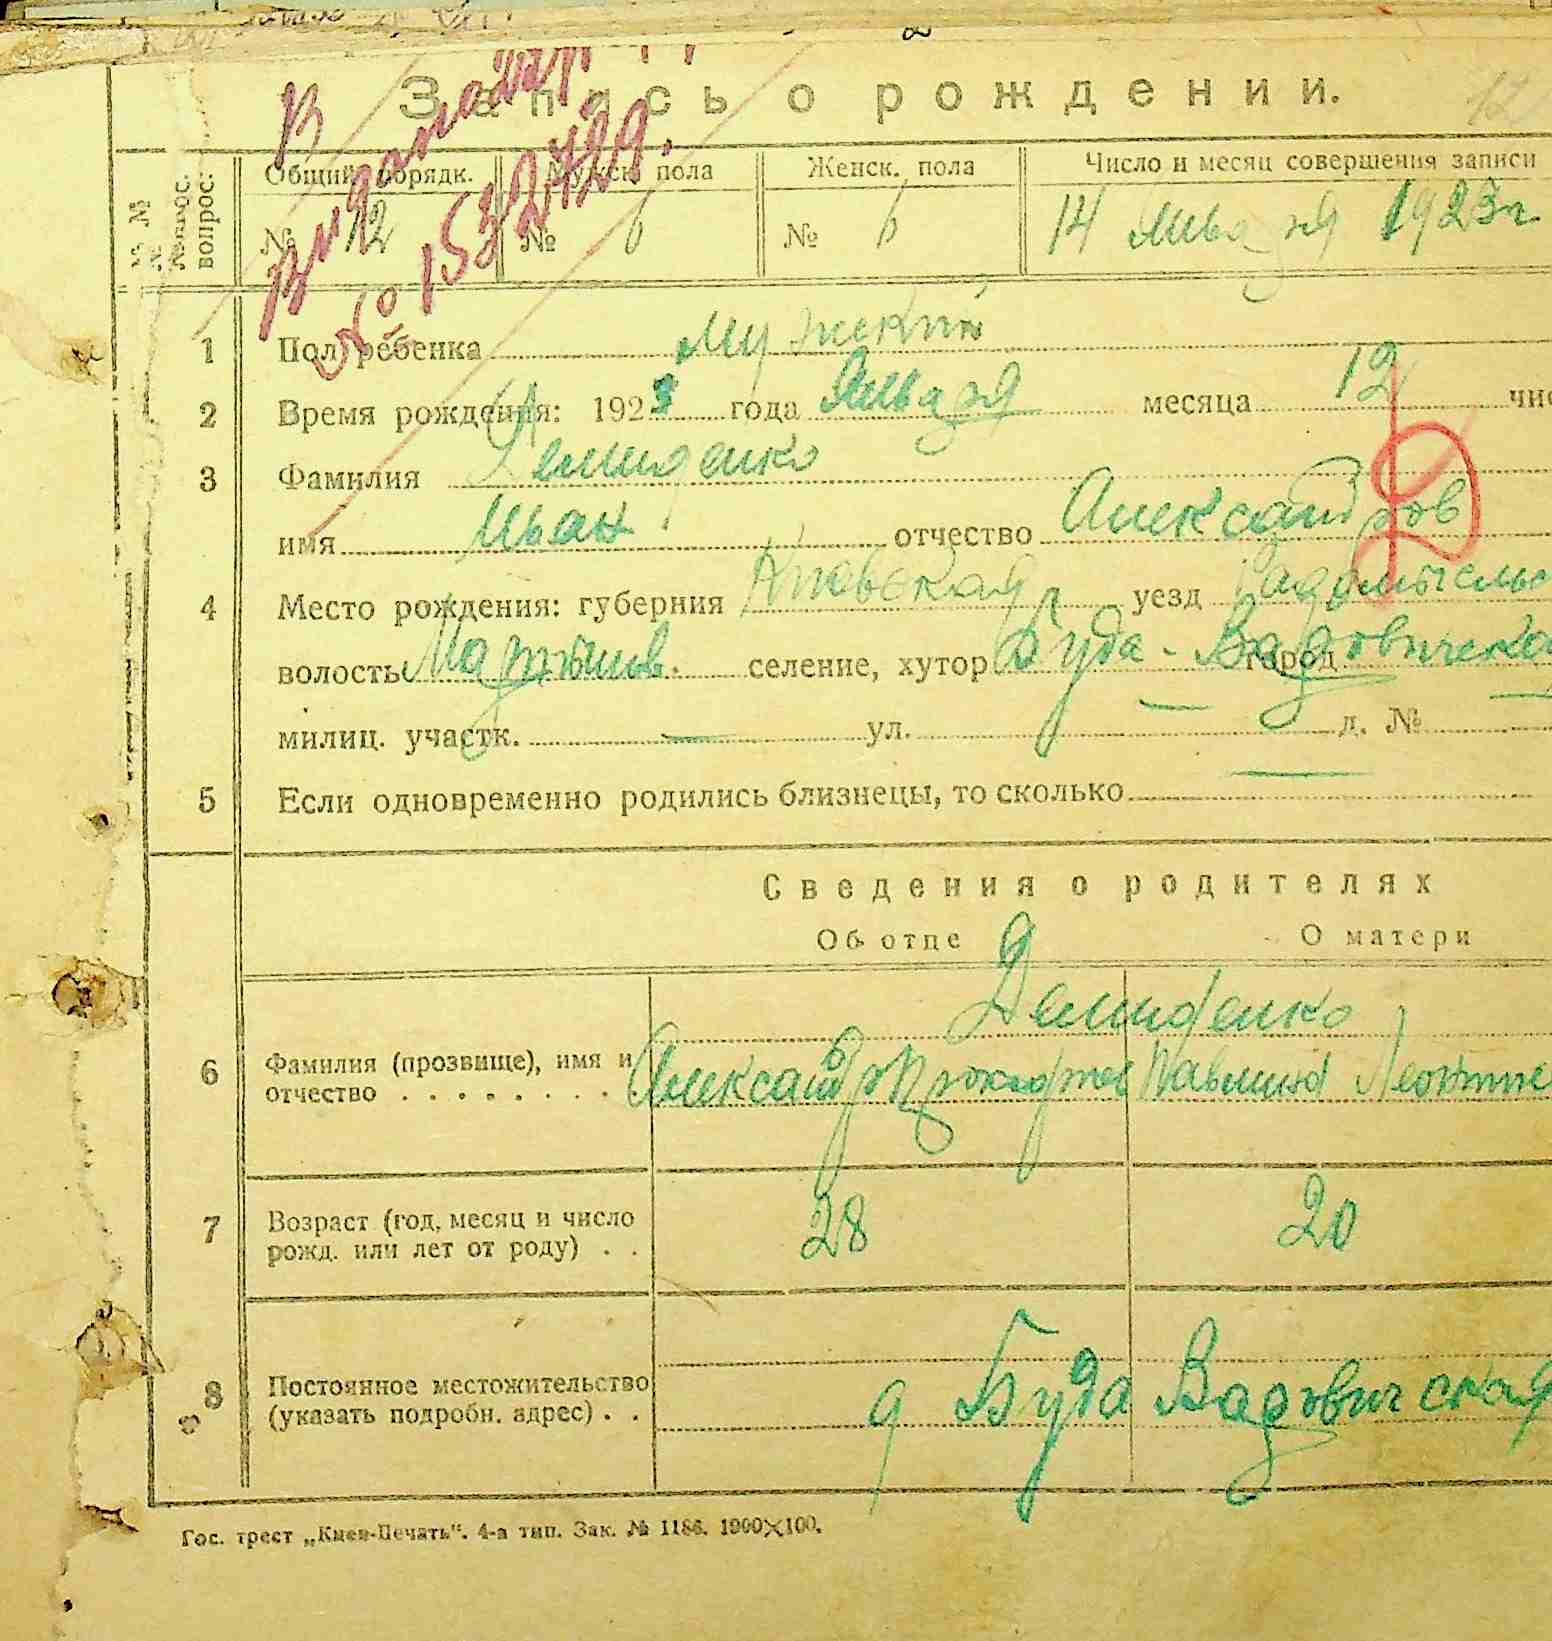 Запись о рождении.
12
№ 153272
№№ №№ вопрос.
Общий порядк. Мужск. пола Женск. пола Число и месяц совершения записи
№ 12 № 6 № 6 14 Января 1923 г
1 Пол ребенка Мужский
2 Время рождения: 1923 года Января месяца 12
3 Фамилия Демиденко
имя Иван отчество Александров
4 Место рождения: губерния Киевская уезд Радомысльс
волость селение, хутор Буда-Вадовическая город
милиц. участк. — ул. д. №
5 Если одновременно родились близнецы, то сколько
Сведения о родителях
Об отце О матери
Демиденко
6 Фамилия (прозвище), имя и отчество Александр Прокофиев Павлина Леонтие
7 Возраст (год, месяц и число рожд. или лет от роду) 28 20
8 Постоянное местожительство (указать подробн. адрес) д Буда Вадовическая
Гос. трест „Киев-Печать". 4-а тип. Зак. № 1186. 1900×100.